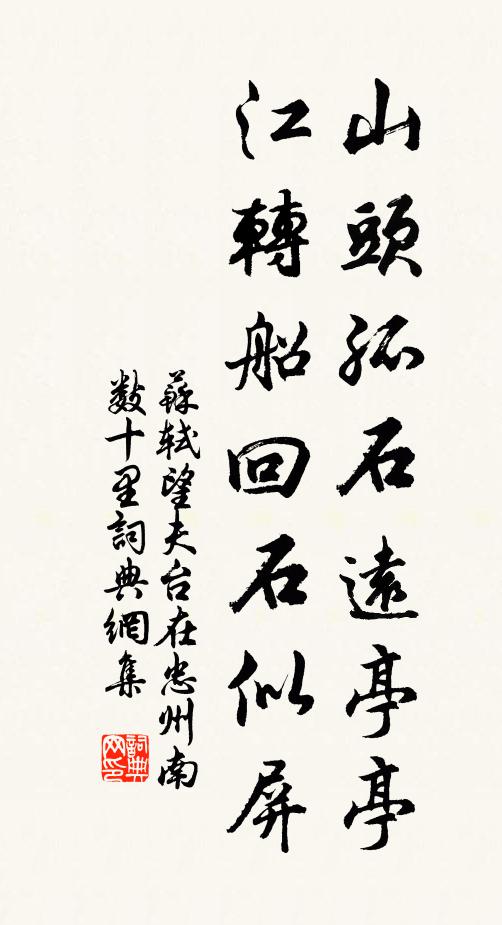 山頭孤石遠亭亭
江轉船回石似屏
蘇軾望夫台在忠州南
數十里詞典網集
詞典
网印